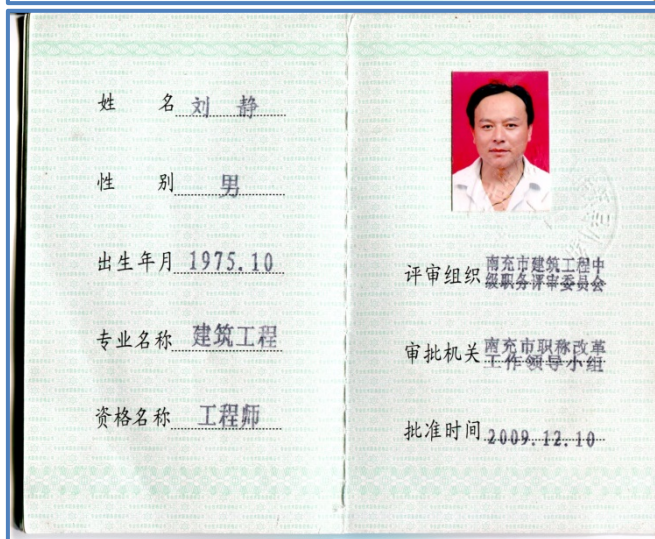 姓 名 刘 静
性 别 男
出生年月 1975.10
专业名称 建筑工程
资格名称 工程师
评审组织 南充市建筑工程中
级职务评审委员会
审批机关 南充市职称改革
工作领导小组
批准时间 2009.12.10